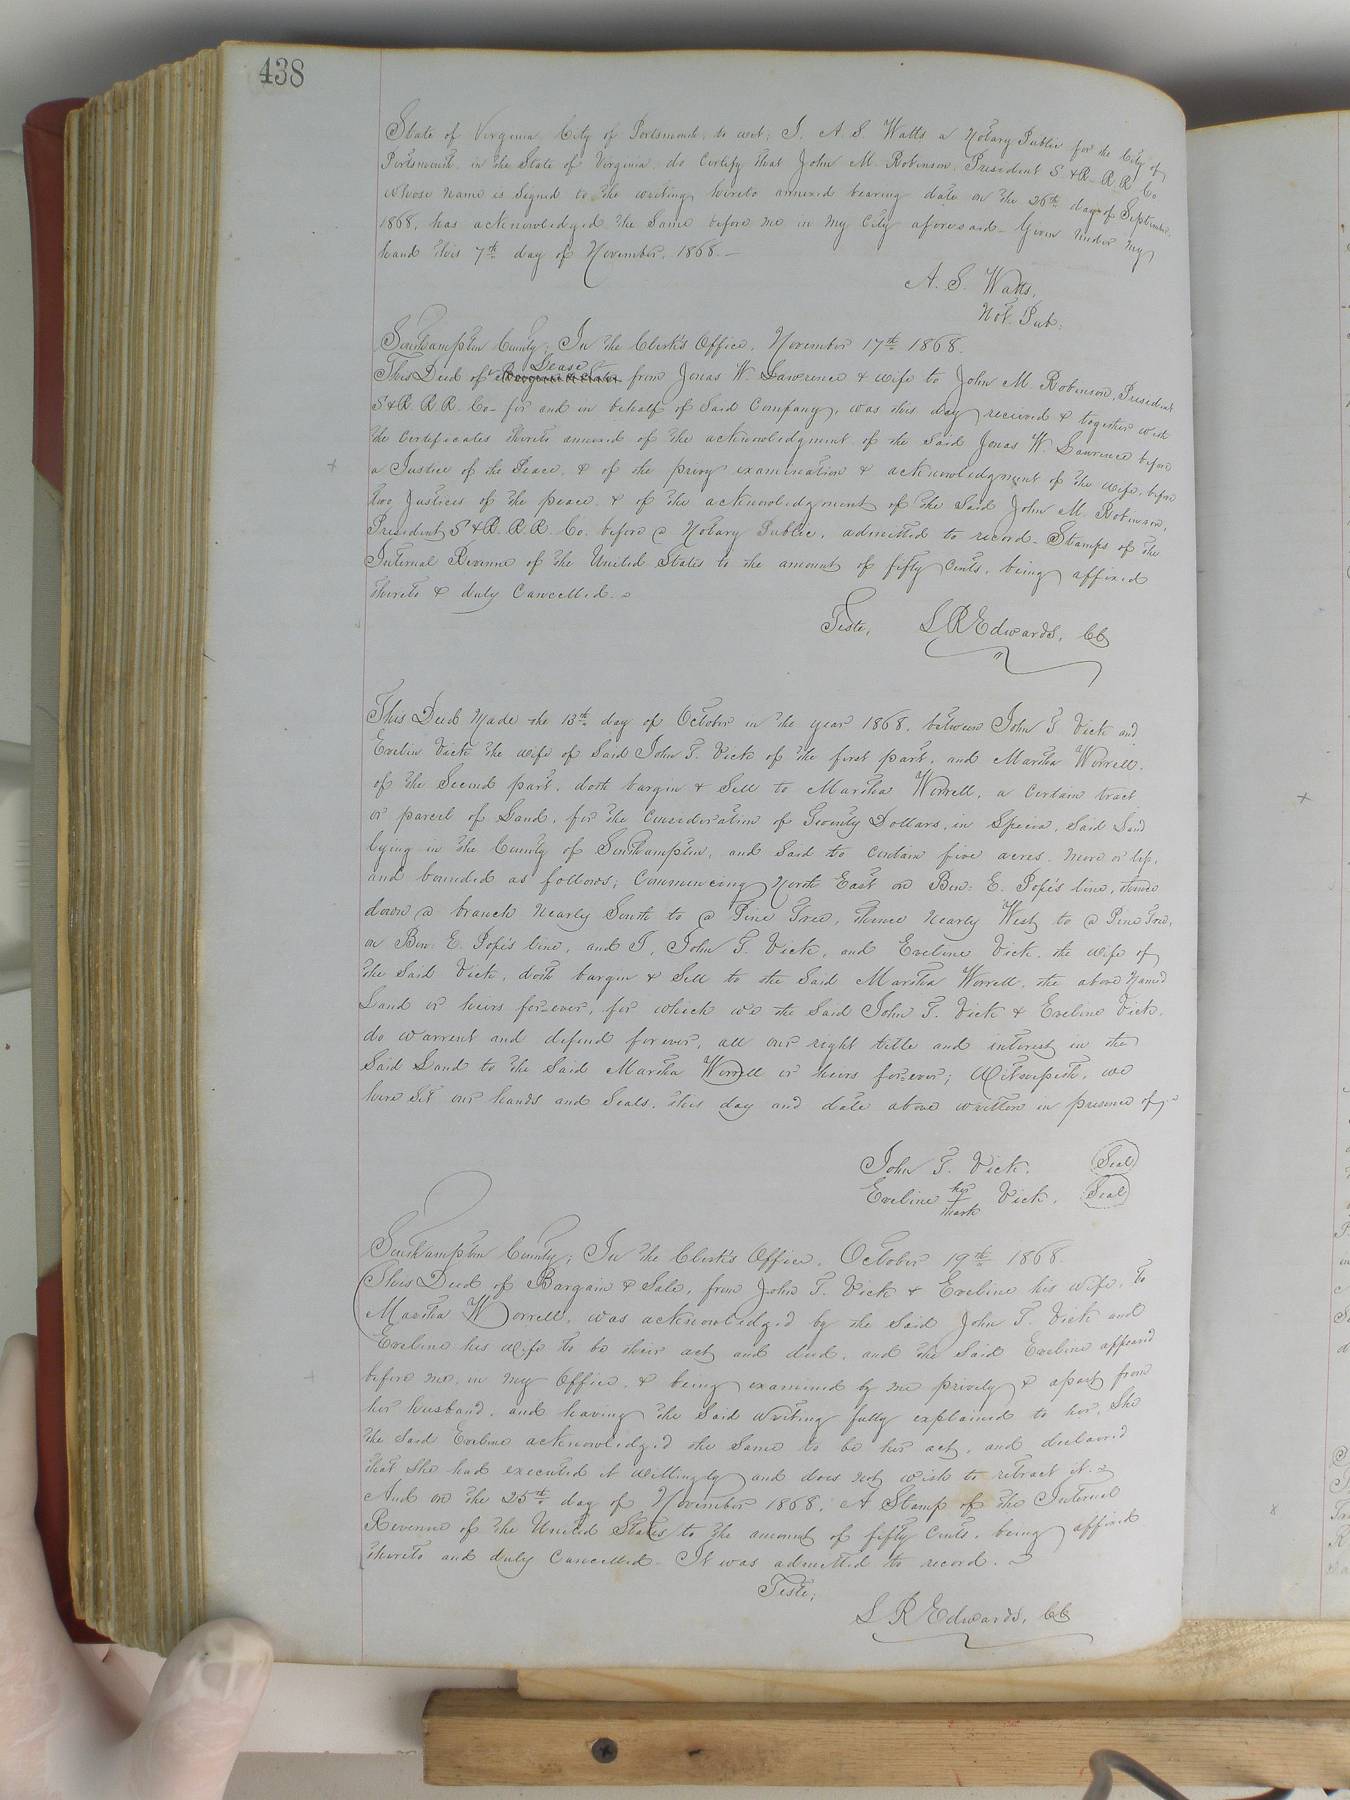 438
State of Virginia, City of Portsmouth, to wit; I, A. S. Watts a Notary Public for the City of
Portsmouth, in the State of Virginia, do Certify that John M. Robinson, President S. & R. R. R. Co
whose name is signed to the writing hereto annexed bearing date on the 26th day of September
1868, has acknowledged the same before me in my City aforesaid - Given under my
hand this 7th day of November, 1868. -
A. S. Watts,
Not. Pub.
Southampton County; In the Clerk's Office, November 17th 1868.
Lease
This Deed of Bargain & Sale from Jonas W. Lawrence & wife to John M. Robinson, President
S. & R. R. R. Co - for and in behalf of said Company, was this day received & together with
the certificates thereto annexed of the acknowledgment of the said Jonas W. Lawrence before
a Justice of the Peace, & of the privy examination & acknowledgment of the wife, before
two Justices of the peace, & of the acknowledgment of the said John M. Robinson,
President S & R. R. R. Co. before a Notary Public, admitted to record - Stamps of the
Internal Revenue of the United States to the amount of fifty cents, being affixed
thereto & duly Cancelled. -
Teste, L R Edwards, CC
This Deed Made the 13th day of October in the year 1868, between John T. Vick and
Evelin Vick the wife of said John T. Vick of the first part, and Martha Worrell,
of the Second part, doth bargin & Sell to Martha Worrell, a certain tract
or parcel of Land, for the Consideration of Twenty Dollars, in Specia, Said Land
lying in the County of Southampton, and said to contain five acres, more or less,
and bounded as follows; Commencing North East on Ben: E. Pope's line, thence
down a branch nearly South to a Pine Tree, thence nearly West to a Pine Tree,
on Ben: E. Pope's line, and I, John T. Vick, and Eveline Vick, the wife of
the said Vick, doth bargin & Sell to the said Martha Worrell, the above Named
Land or heirs for-ever, for which we the said John T. Vick & Eveline Vick,
do warrent and defend forever, all our right title and interest in the
Said Land to the said Martha Worrell or heirs for-ever; Witnesseth, we
here set our hands and Seals, this day and date above written in presence of, -
John T. Vick. Seal
Eveline her mark Vick. Seal
Southampton County; In the Clerk's Office, October 19th 1868.
This Deed of Bargain & Sale, from John T. Vick & Eveline his wife, to
Martha Worrell, was acknowledged by the said John T. Vick and
Eveline his wife to be their act and deed, and the said Eveline appeared
before me, in my Office, & being examined by me privily & apart from
her husband, and having the said writing fully explained to her, She
the said Eveline acknowledged the same to be her act, and declared
that she had executed it willingly and does not wish to retract it. -
And on the 25th day of November 1868, A Stamp of the Internal
Revenue of the United States to the amount of fifty cents, being affixed
thereto and duly Cancelled - It was admitted to record. -
Teste;
L R Edwards, CC